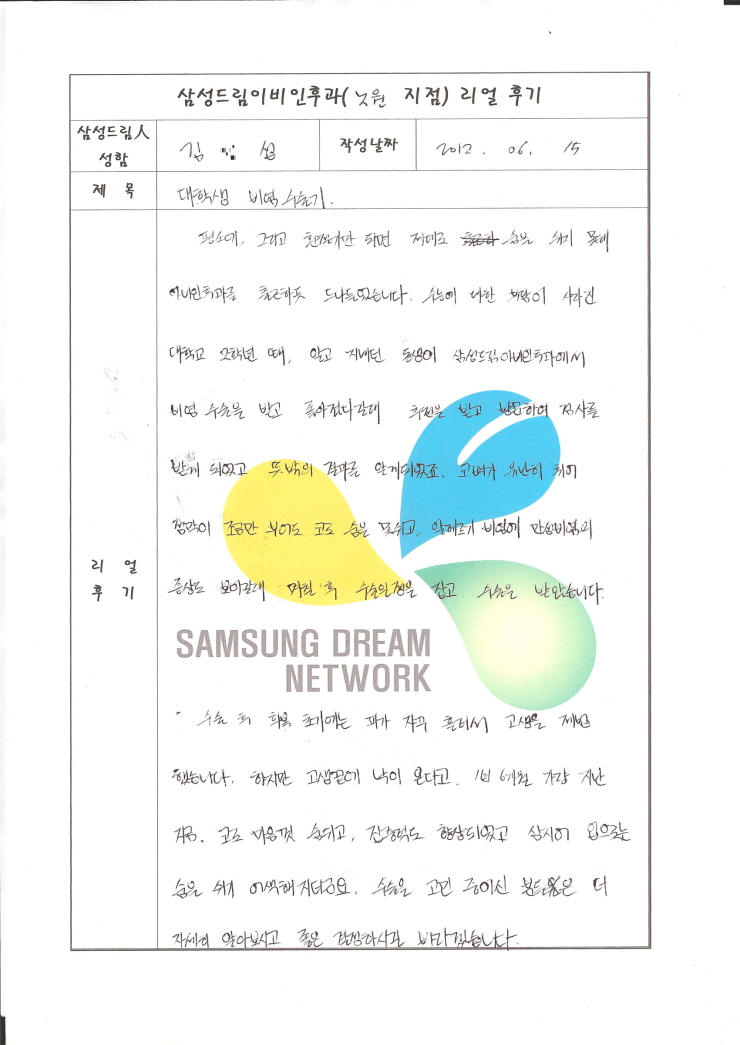 삼성드림이비인후과( 노원 지점) 리얼 후기
삼성드림人
성함
김 섭
작성날짜
2012. 06. 15
제 목
대학생 비염 수술기.
그리고 환절기만 되면 제대로 숨을 쉬지 못해
이비인후과를 출근하듯 드나들었습니다. 수능에 대한 부담이 사라진
대학교 2학년 때, 알고 지내던 동생이 삼성드림이비인후과에서
비염 수술을 받고 좋아졌다길래 추천을 받고 방문하여 검사를
받게 되었고 뜻밖의 결과를 알게되었죠. 코뼈가 유난히 휘어
점막이 조금만 부어도 코로 숨을 못쉬고, 알레르기 비염에 만성비염의
증상도 보이길래 며칠 후 수술일정을 잡고 수술을 받았습니다.
리 얼
후 기
SAMSUNG DREAM
NETWORK
수술 후 회복 초기에는 피가 자꾸 흘러서 고생을 제법
했습니다. 하지만 고생끝에 낙이 온다고. 1년 6개월 가량 지난
지금. 코로 마음껏 숨쉬고, 집중력도 향상되었고 심지어 입으로는
숨을 쉬기 어색해지더군요. 수술을 고민 중이신 분들은 더
자세히 알아보시고 좋은 결정하시길 바라겠습니다.